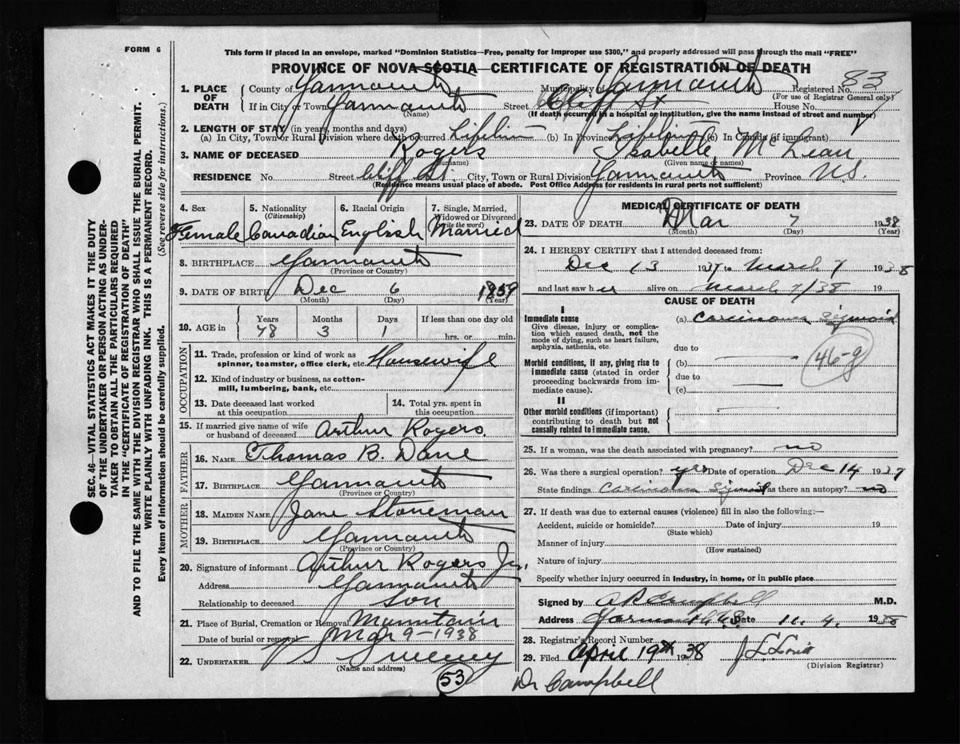 FORM 6
This form if placed in an envelope, marked "Dominion Statistics—Free, penalty for improper use $300," and properly addressed will pass through the mail "FREE"
PROVINCE OF NOVA SCOTIA—CERTIFICATE OF REGISTRATION OF DEATH
SEC. 46—VITAL STATISTICS ACT MAKES IT THE DUTY
OF THE UNDERTAKER OR PERSON ACTING AS UNDER-
TAKER TO OBTAIN ALL THE PARTICULARS REQUIRED
IN THE "CERTIFICATE OF REGISTRATION OF DEATH"
AND TO FILE THE SAME WITH THE DIVISION REGISTRAR WHO SHALL ISSUE THE BURIAL PERMIT.
WRITE PLAINLY WITH UNFADING INK. THIS IS A PERMANENT RECORD.
Every item of information should be carefully supplied.
(See reverse side for instructions.)
1. PLACE OF DEATH
County of Yarmouth Municipality of Yarmouth Registered No. 83
(For use of Registrar General only)
If in City or Town Yarmouth Street Cliff St House No.
(Name) (If death occurred in a hospital or institution, give the name instead of street and number)
2. LENGTH OF STAY (in years, months and days)
(a) In City, Town or Rural Division where death occurred Lifetime (b) In Province Lifetime (c) In Canada (if immigrant)
3. NAME OF DECEASED Rogers Isabelle McLean
(Surname) (Given name or names)
RESIDENCE No. Street Cliff St. City, Town or Rural Division Yarmouth Province N.S.
(Residence means usual place of abode. Post Office Address for residents in rural parts not sufficient)
4. Sex
Female
5. Nationality (Citizenship)
Canadian
6. Racial Origin
English
7. Single, Married, Widowed or Divorced (write the word)
Married
8. BIRTHPLACE Yarmouth
(Province or Country)
9. DATE OF BIRTH Dec 6 1859
(Month) (Day) (Year)
10. AGE in Years Months Days If less than one day old
78 3 1 hrs. or min.
OCCUPATION
11. Trade, profession or kind of work as spinner, teamster, office clerk, etc. Housewife
12. Kind of industry or business, as cotton-mill, lumbering, bank, etc.
13. Date deceased last worked at this occupation
14. Total yrs. spent in this occupation
15. If married give name of wife or husband of deceased Arthur Rogers.
FATHER
16. NAME Thomas B. Dane
17. BIRTHPLACE Yarmouth
(Province or Country)
MOTHER
18. MAIDEN NAME Jane Stoneman
19. BIRTHPLACE Yarmouth
(Province or Country)
20. Signature of informant Arthur Rogers Jr.
Address Yarmouth
Relationship to deceased Son
21. Place of Burial, Cremation or Removal Mountain
Date of burial or removal Mar 9-1938
22. UNDERTAKER Sweeny
(Name and address)
53
MEDICAL CERTIFICATE OF DEATH
23. DATE OF DEATH Mar 7 1938
(Month) (Day) (Year)
24. I HEREBY CERTIFY that I attended deceased from:
Dec 13 1937 to March 7 1938
and last saw her alive on March 7/38 19
CAUSE OF DEATH
I
Immediate cause (a) Carcinoma Sigmoid
Give disease, injury or complication which caused death, not the mode of dying, such as heart failure, asphyxia, asthenia, etc.
due to
46-g
Morbid conditions, if any, giving rise to immediate cause (stated in order proceeding backwards from immediate cause).
(b)
due to
(c)
II
Other morbid conditions (if important) contributing to death but not causally related to immediate cause.
25. If a woman, was the death associated with pregnancy? no
26. Was there a surgical operation? yes Date of operation Dec 14 1937
State findings Carcinoma Sigmoid Was there an autopsy? no
27. If death was due to external causes (violence) fill in also the following:—
Accident, suicide or homicide? Date of injury 19
(State which)
Manner of injury
(How sustained)
Nature of injury
Specify whether injury occurred in industry, in home, or in public place
Signed by A R Campbell M.D.
Address Yarmouth N.S. Date 11. 4. 1938
28. Registrar's Record Number
29. Filed April 19th 1938
(Division Registrar)
Dr Campbell